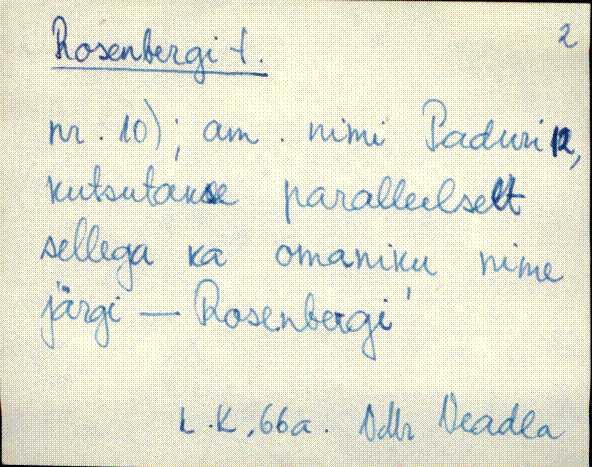 Rosenbergi t. 2
nr. 10); am. nimi Paduri 12,
kutsutakse paralleelselt
sellega ka omaniku nime
järgi — Rosenbergi'
L.K. 66a. Vdr Veadla